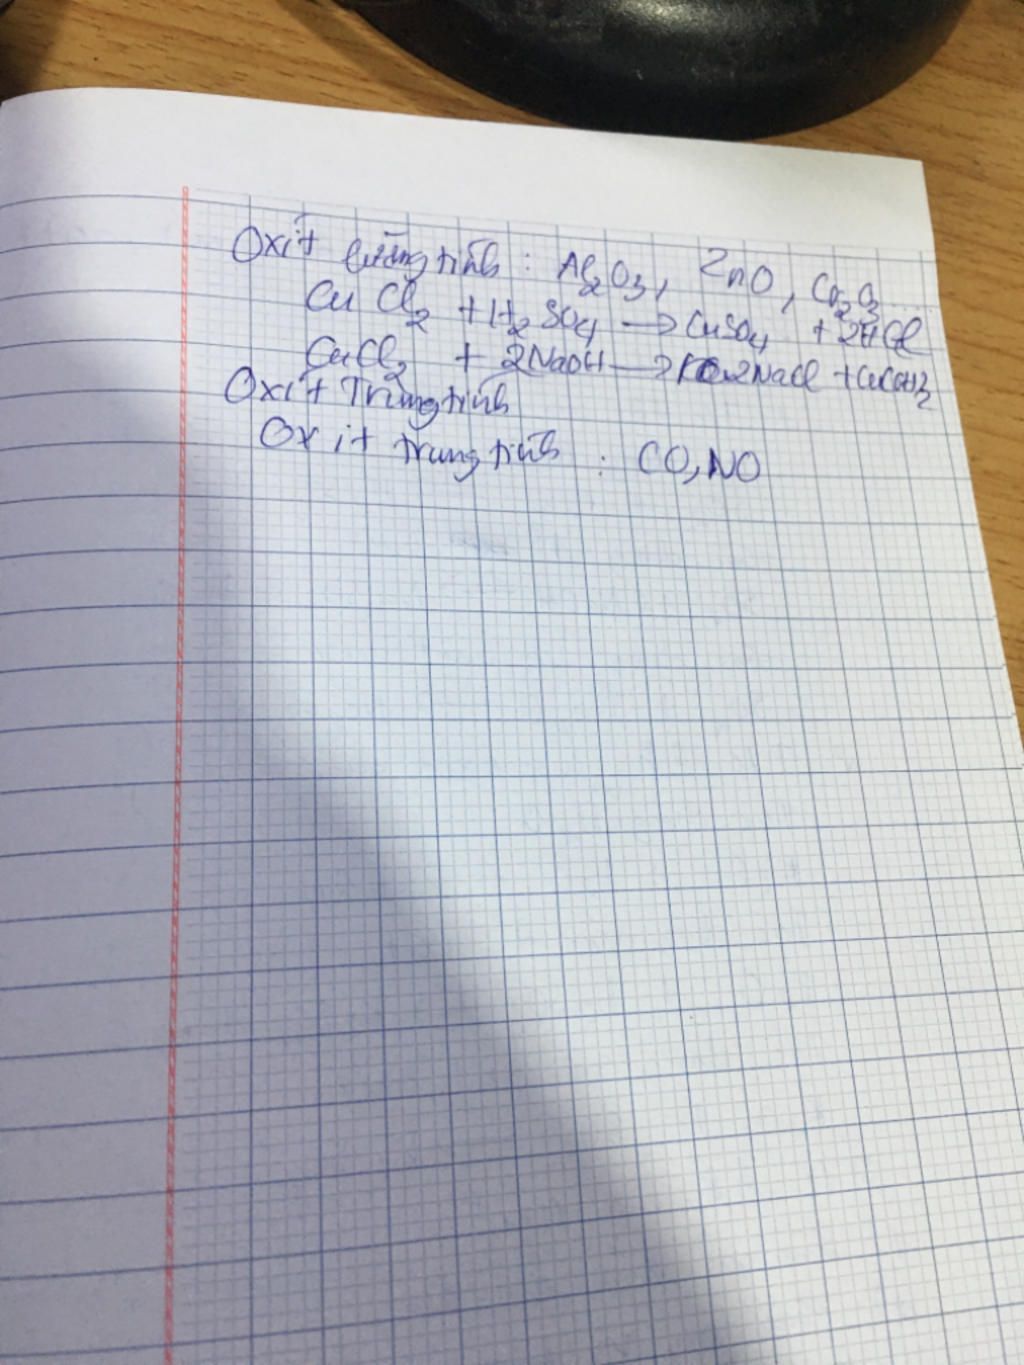 Oxit lưỡng tính : Al2O3, ZnO, Cr2O3
CuCl2 + H2SO4 → CuSO4 + 2HCl
CuCl2 + 2NaOH → 2NaCl + Cu(OH)2
Oxit Trung tính
Oxit trung tính : CO, NO